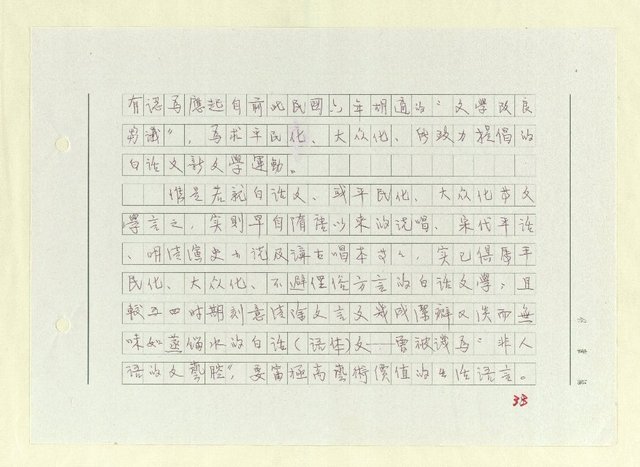 有認為應起自前此民國六年胡適的“文學改良
芻議”，為求平民化、大众化、所致力提倡的
白话文新文學運動。
但是若就白话文、或平民化、大众化等文
學言之，实則早自隋唐以來的说唱、宋代平话
、明清演史小说及講古唱本等等，实已得屬平
民化、大众化、不避俚俗方言的白话文學，且
較五四时期刻意清除文言文幾成潔癖又淡而無
味如蒸餾水的白话(语体)文——曾被譏為“非人
话的文藝腔”，要富極高藝術價值的生活语言。
38